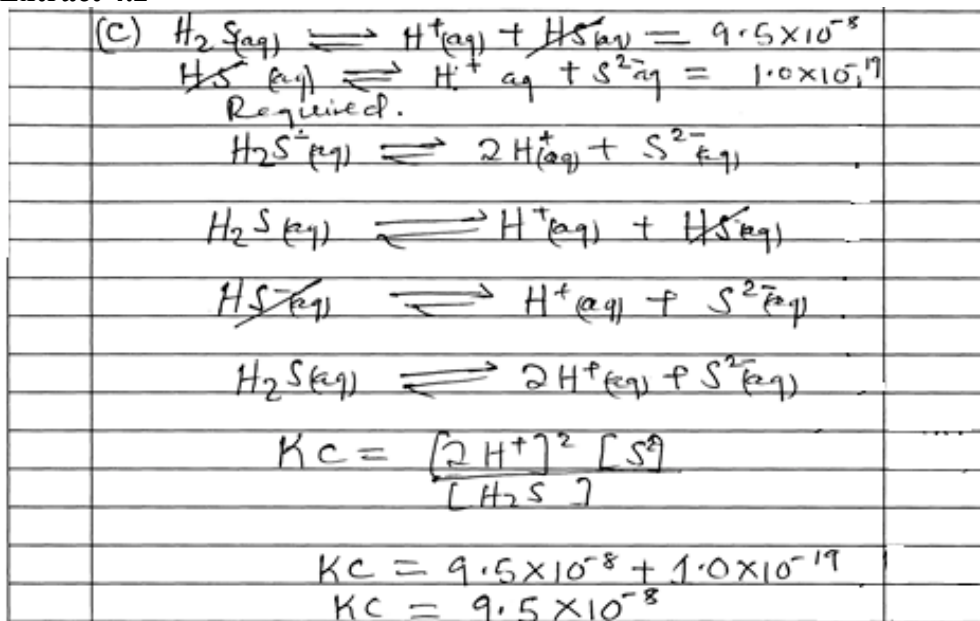 (C) H₂S(aq) ⇌ H⁺(aq) + HS⁻(aq) = 9.5×10⁻⁸
HS⁻(aq) ⇌ H⁺ aq + S²⁻aq = 1.0×10⁻¹⁹
Required.
H₂S⁻(aq) ⇌ 2H⁺(aq) + S²⁻(aq)
H₂S(aq) ⇌ H⁺(aq) + HS⁻(aq)
HS⁻(aq) ⇌ H⁺(aq) + S²⁻(aq)
H₂S(aq) ⇌ 2H⁺(aq) + S²⁻(aq)
KC = [2H⁺]² [S²]
[H₂S]
KC = 9.5×10⁻⁸ + 1.0×10⁻¹⁹
KC = 9.5×10⁻⁸